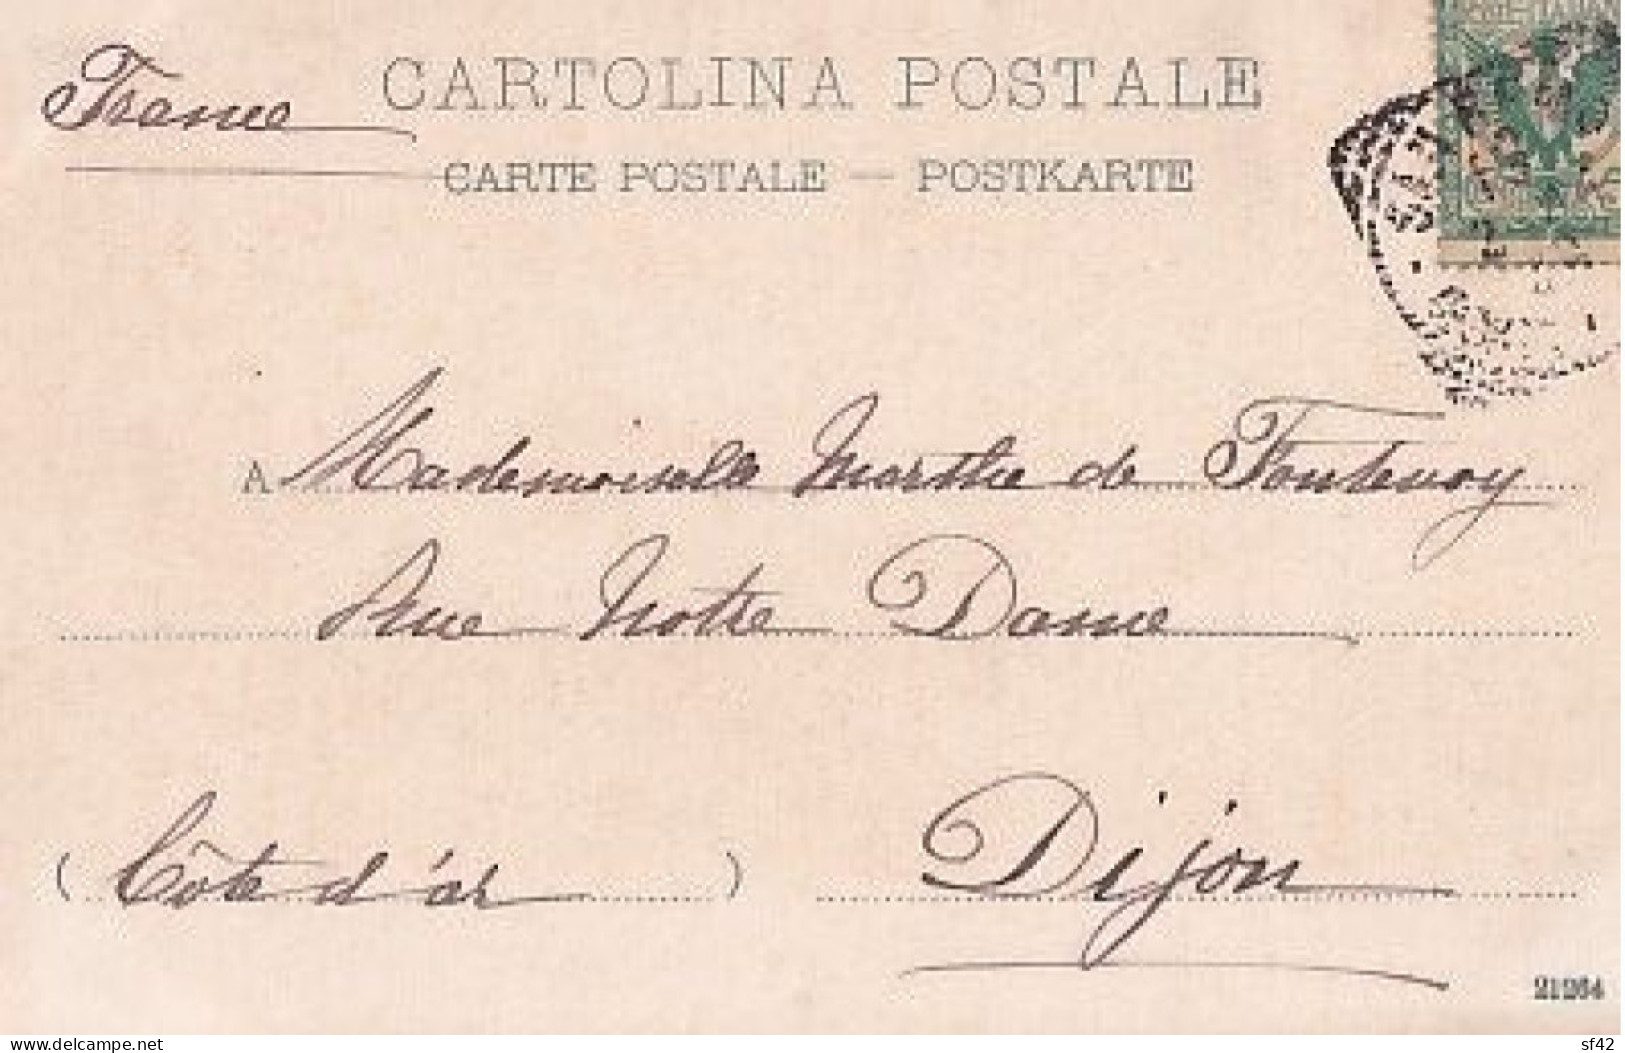 France
CARTOLINA POSTALE
CARTE POSTALE — POSTKARTE
A Mademoiselle Marthe de Fontenay
Rue Notre Dame
Dijon
(Côte d'or)
21264
delcampe.net
sf42